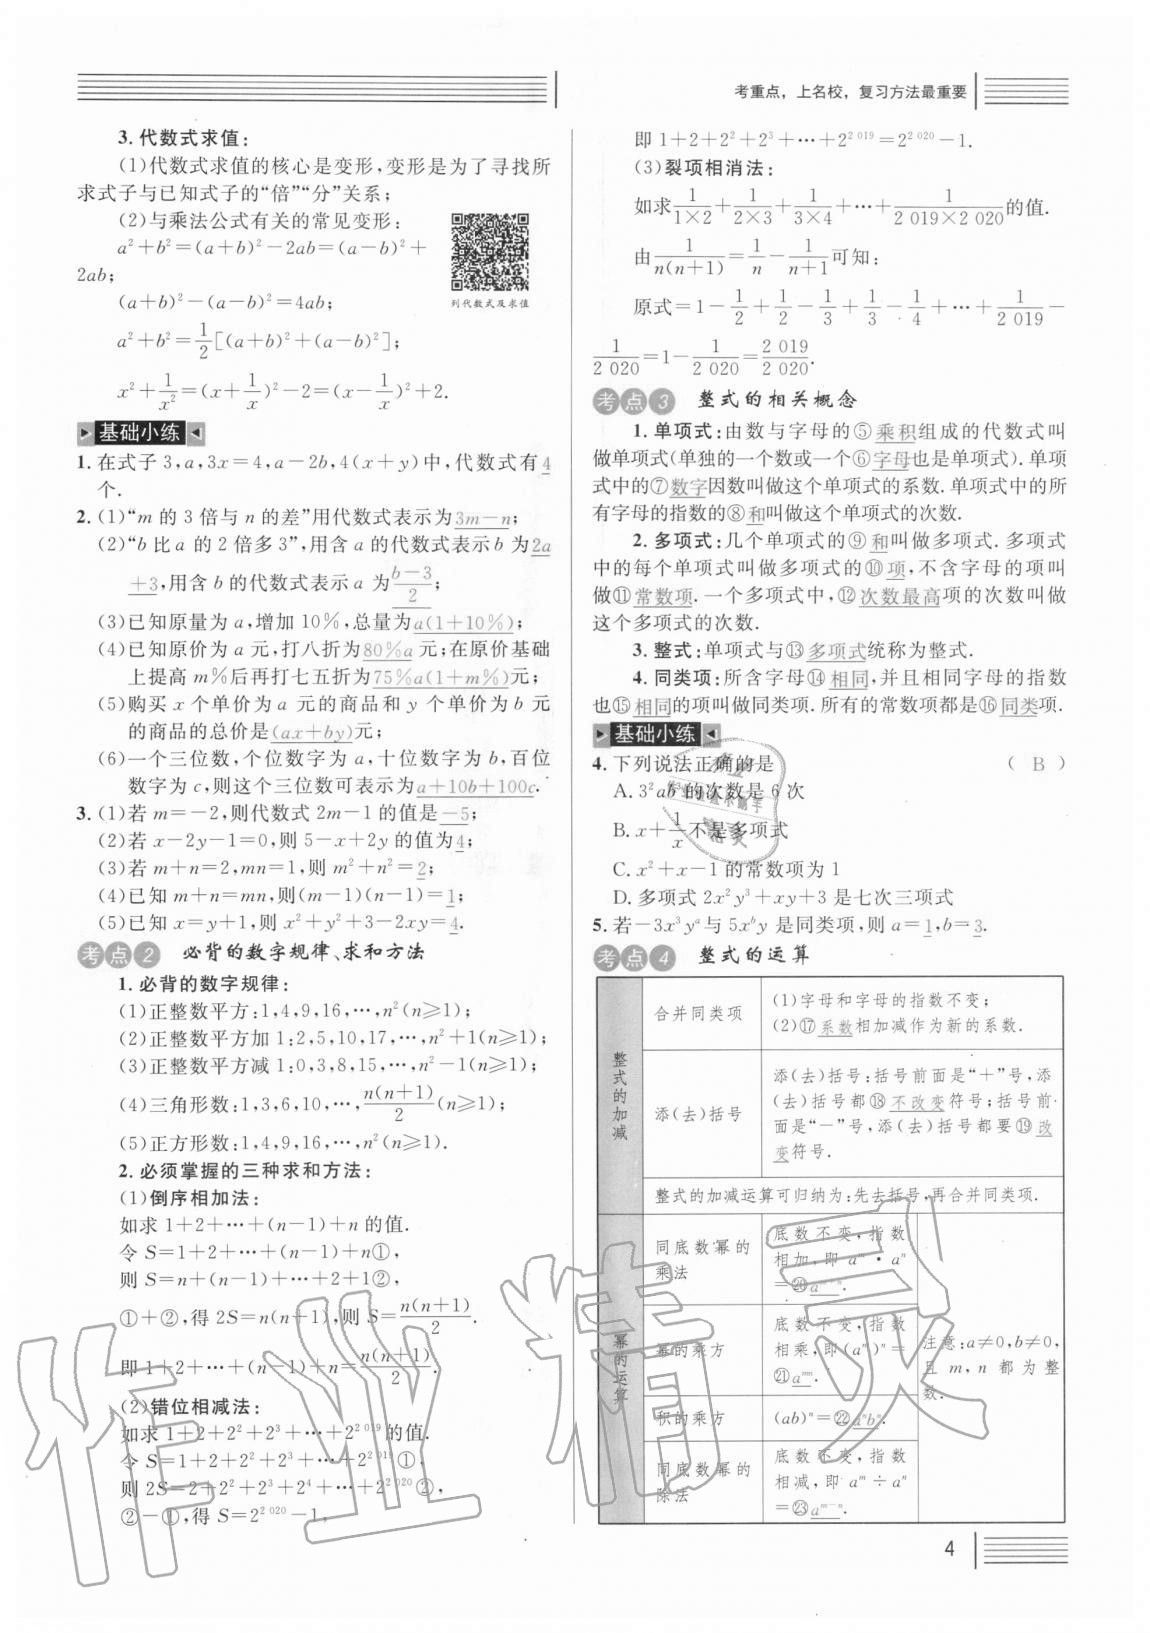 考重点，上名校，复习方法最重要
3. 代数式求值：
(1)代数式求值的核心是变形，变形是为了寻找所
求式子与已知式子的“倍”“分”关系；
(2)与乘法公式有关的常见变形：
a²+b²=(a+b)²-2ab=(a-b)²+
2ab；
(a+b)²-(a-b)²=4ab；
列代数式及求值
a²+b²=1/2[(a+b)²+(a-b)²]；
x²+1/x²=(x+1/x)²-2=(x-1/x)²+2.
基础小练
1. 在式子 3，a，3x=4，a-2b，4(x+y)中，代数式有4
个.
2. (1)“m 的 3 倍与 n 的差”用代数式表示为3m-n；
(2)“b 比 a 的 2 倍多 3”，用含 a 的代数式表示 b 为2a
+3，用含 b 的代数式表示 a 为(b-3)/2；
(3)已知原量为 a，增加 10%，总量为a(1+10%)；
(4)已知原价为 a 元，打八折为80%a元；在原价基础
上提高 m%后再打七五折为75%a(1+m%)元；
(5)购买 x 个单价为 a 元的商品和 y 个单价为 b 元
的商品的总价是(ax+by)元；
(6)一个三位数，个位数字为 a，十位数字为 b，百位数
字为 c，则这个三位数可表示为a+10b+100c.
3. (1)若 m=-2，则代数式 2m-1 的值是-5；
(2)若 x-2y-1=0，则 5-x+2y 的值为4；
(3)若 m+n=2，mn=1，则 m²+n²=2；
(4)已知 m+n=mn，则(m-1)(n-1)=1；
(5)已知 x=y+1，则 x²+y²+3-2xy=4.
考点2 必背的数字规律、求和方法
1. 必背的数字规律：
(1)正整数平方：1，4，9，16，…，n²(n≥1)；
(2)正整数平方加 1：2，5，10，17，…，n²+1(n≥1)；
(3)正整数平方减 1：0，3，8，15，…，n²-1(n≥1)；
(4)三角形数：1，3，6，10，…，n(n+1)/2(n≥1)；
(5)正方形数：1，4，9，16，…，n²(n≥1).
2. 必须掌握的三种求和方法：
(1)倒序相加法：
如求 1+2+…+(n-1)+n 的值.
令 S=1+2+…+(n-1)+n①，
则 S=n+(n-1)+…+2+1②，
①+②，得 2S=n(n+1)，则 S=n(n+1)/2.
即 1+2+…+(n-1)+n=n(n+1)/2.
(2)错位相减法：
如求 1+2+2²+2³+…+2^2 019的值.
令 S=1+2+2²+2³+…+2^2 019①，
则 2S=2+2²+2³+2⁴+…+2^2 020②，
②-①，得 S=2^2 020-1，
即 1+2+2²+2³+…+2^2 019=2^2 020-1.
(3)裂项相消法：
如求1/(1×2)+1/(2×3)+1/(3×4)+…+1/(2 019×2 020)的值.
由1/(n(n+1))=1/n-1/(n+1)可知：
原式=1-1/2+1/2-1/3+1/3-1/4+…+1/2 019-
1/2 020=1-1/2 020=2 019/2 020.
考点3 整式的相关概念
1. 单项式：由数与字母的⑤乘积组成的代数式叫
做单项式(单独的一个数或一个⑥字母也是单项式). 单项
式中的⑦数字因数叫做这个单项式的系数. 单项式中的所
有字母的指数的⑧和叫做这个单项式的次数.
2. 多项式：几个单项式的⑨和叫做多项式. 多项式
中的每个单项式叫做多项式的⑩项，不含字母的项叫
做⑪常数项. 一个多项式中，⑫次数最高项的次数叫做
这个多项式的次数.
3. 整式：单项式与⑬多项式统称为整式.
4. 同类项：所含字母⑭相同，并且相同字母的指数
也⑮相同的项叫做同类项. 所有的常数项都是⑯同类项.
基础小练
4. 下列说法正确的是 （ B ）
A. 3²ab 的次数是 6 次
B. x+1/x不是多项式
C. x²+x-1 的常数项为 1
D. 多项式 2x²y³+xy+3 是七次三项式
5. 若-3x³yᵃ与 5xᵇy 是同类项，则 a=1，b=3.
考点4 整式的运算
整式的加减
合并同类项
(1)字母和字母的指数不变；
(2)⑰系数相加减作为新的系数.
添(去)括号
添(去)括号：括号前面是“+”号，添
(去)括号都⑱不改变符号；括号前
面是“-”号，添(去)括号都要⑲改
变符号.
整式的加减运算可归纳为：先去括号，再合并同类项.
幂的运算
同底数幂的
乘法
底数不变，指数
相加，即 aᵐ·aⁿ
=⑳aᵐ⁺ⁿ.
幂的乘方
底数不变，指数
相乘，即(aᵐ)ⁿ=
㉑aᵐⁿ.
积的乘方
(ab)ⁿ=㉒aⁿbⁿ.
同底数幂的
除法
底数不变，指数
相减，即 aᵐ÷aⁿ
=㉓aᵐ⁻ⁿ.
注意：a≠0，b≠0，
且 m，n 都为整
数.
4
作业精灵